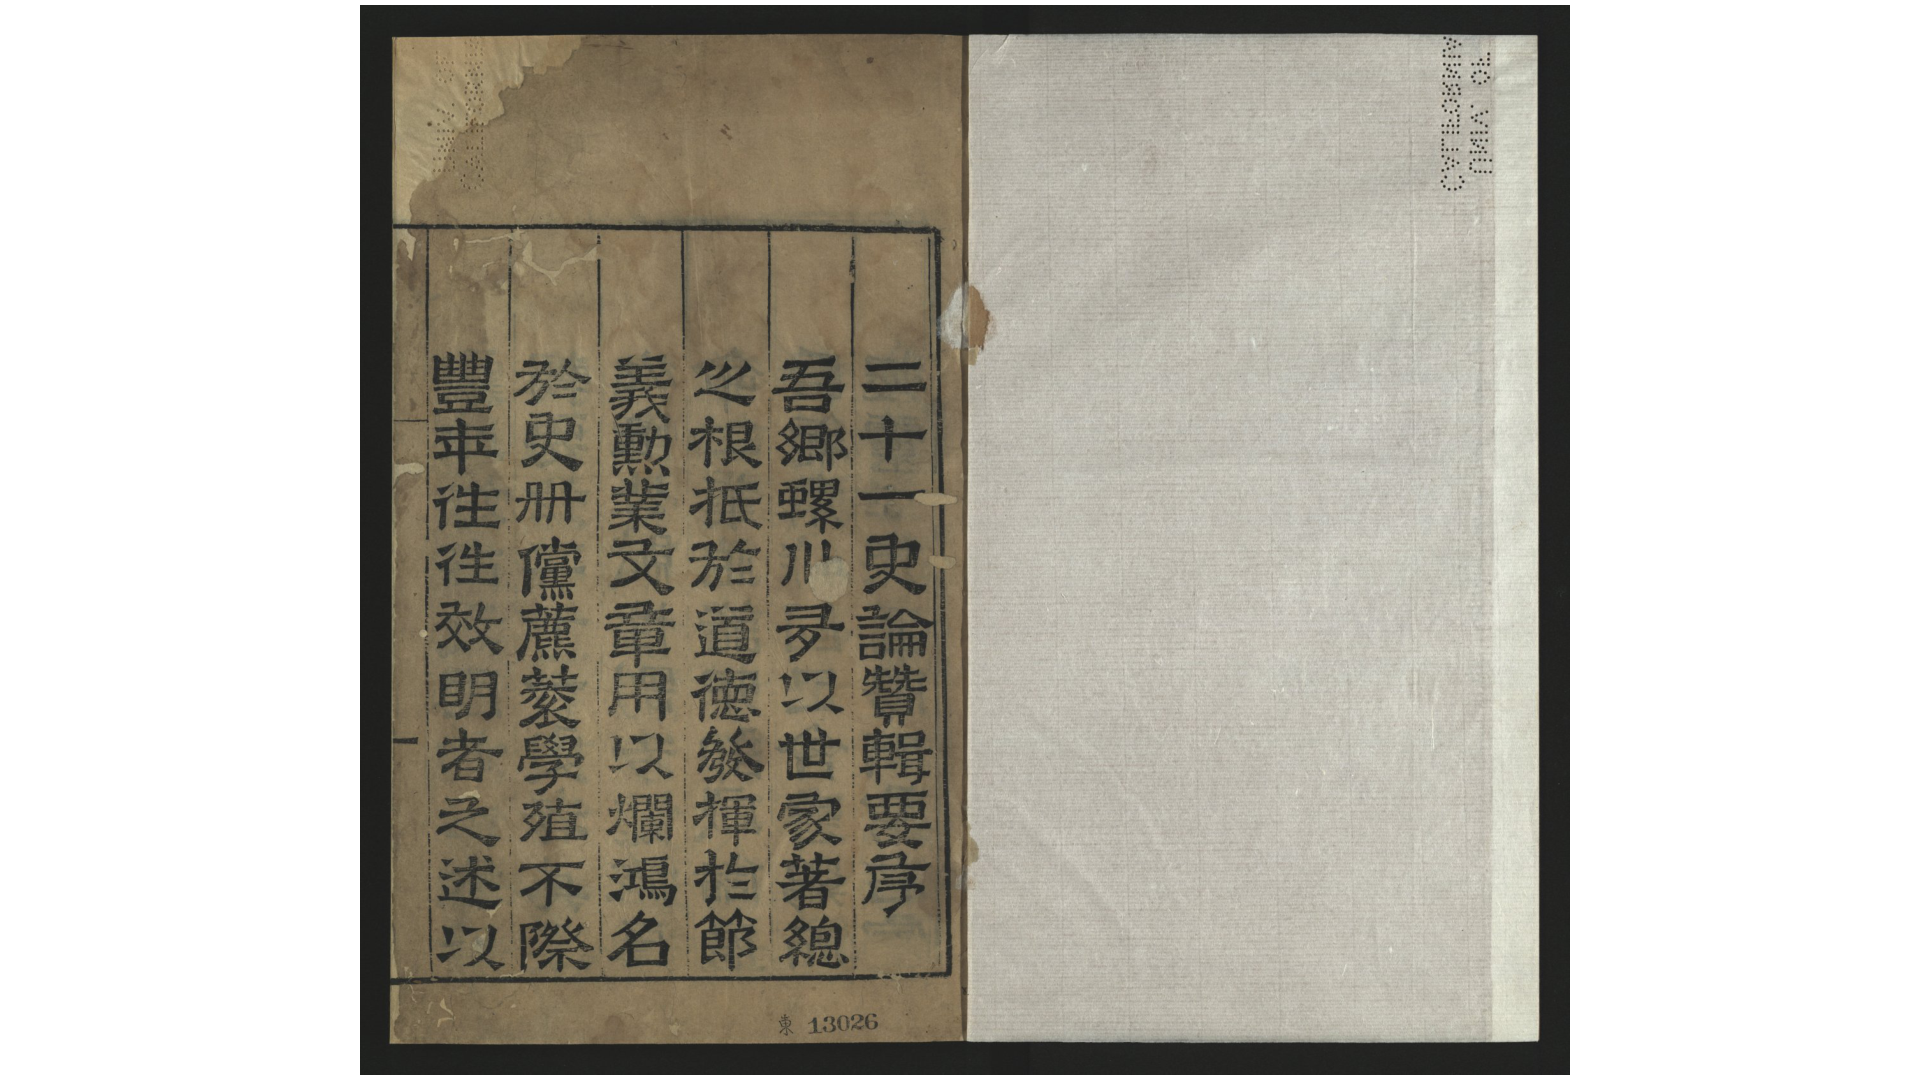 二十一史論贊輯要序
吾鄉螺川夛以世家著緫
之根抵於道德發揮於節
義勳業文章用以爛鴻名
於史册儻藨蓘學殖不際
豐年往往效明者之述以
東 13026
UNIV. OF
CALIFORNIA